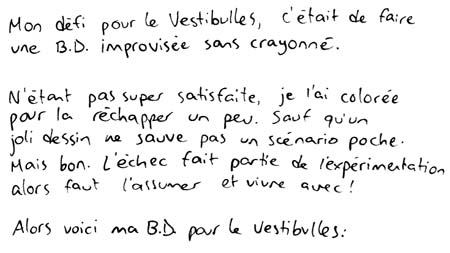 Mon défi pour le Vestibulles, c'était de faire
une B.D. improvisée sans crayonné.
N'étant pas super satisfaite, je l'ai colorée
pour la réchapper un peu. Sauf qu'un
joli dessin ne sauve pas un scénario poche.
Mais bon. L'échec fait partie de l'expérimentation
alors faut l'assumer et vivre avec!
Alors voici ma B.D. pour le Vestibulles: